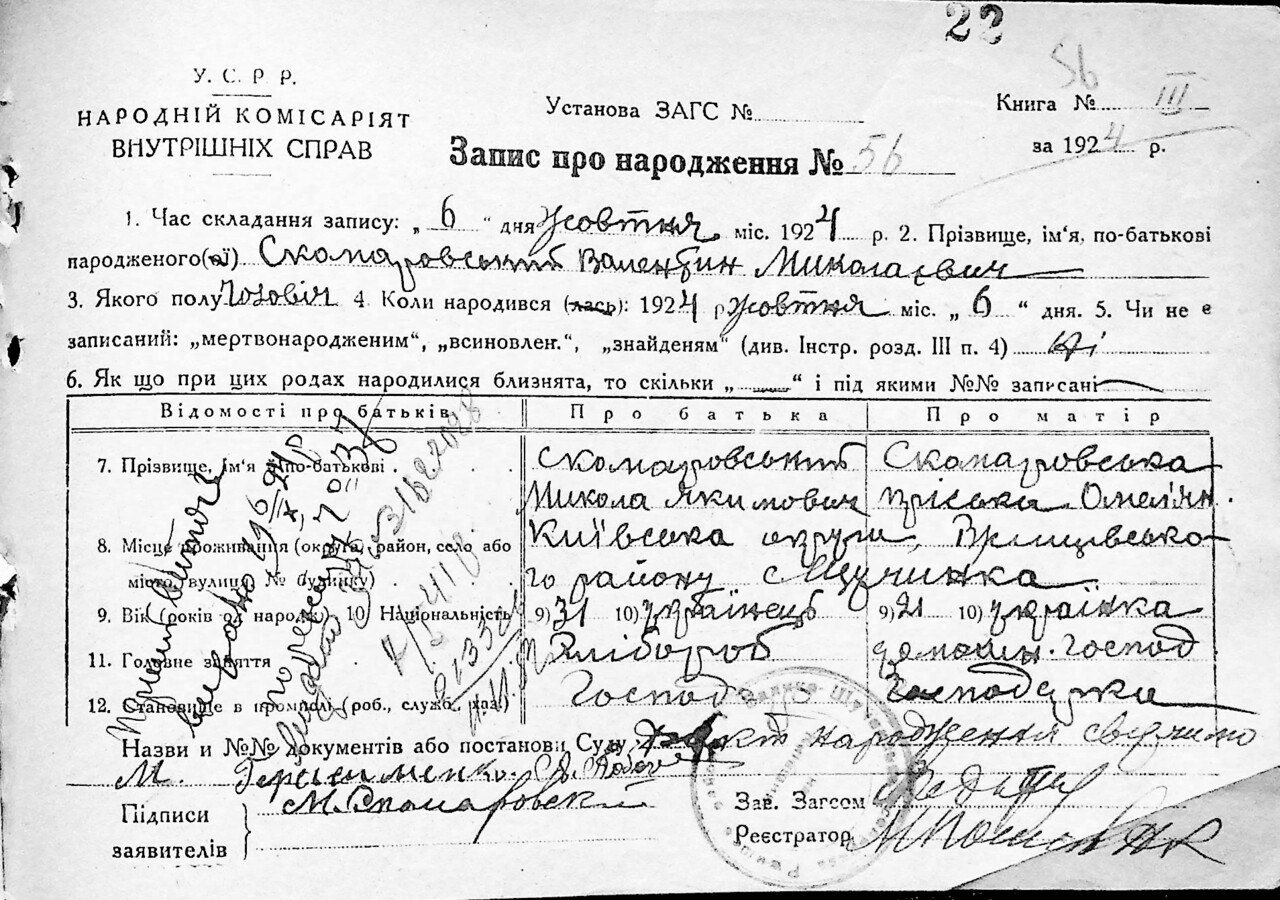 22
У. С. Р. Р.
НАРОДНІЙ КОМІСАРІЯТ
ВНУТРІШНІХ СПРАВ
Установа ЗАГС №
56
Книга № III
за 1924 р.
Запис про народження № 56
1. Час складання запису: „ 6 “ дня жовтня міс. 1924 р. 2. Прізвище, ім‘я, по-батькові
народженого(ої) Скомаровський Валентин Миколаєвич
3. Якого полу Чоловіч 4. Коли народився (лась): 1924 р жовтня міс. „ 6 “ дня. 5. Чи не є
записаний: „мертвонародженим“, „всиновлен.“, „знайденям“ (див. Інстр. розд. III п. 4) Ні
6. Як що при цих родах народилися близнята, то скільки „ — “ і під якими №№ записані —
Відомості про батьків Про батька Про матір
7. Прізвище, ім‘я й по-батькові Скомаровський Скомаровська
Микола Якимович Пріська Омел'ян.
8. Місце проживання (округа, район, село або Київська округи, Ржищевсько-
місто, вулиця, № будинку) го району с.
9. Вік (років од народж.) 10. Національність 9) 31 10) українець 9) 21 10) українка
11. Головне заняття Хлібороб домашн. господ
12. Становище в промислі (роб., служб., хаз.) Господ Господарка
Назви и №№ документів або постанови Суду Факт народження свідчимо
М. Герасименко
Підписи
заявителів
М. Скомаровский
Зав. Загсом
Реєстратор